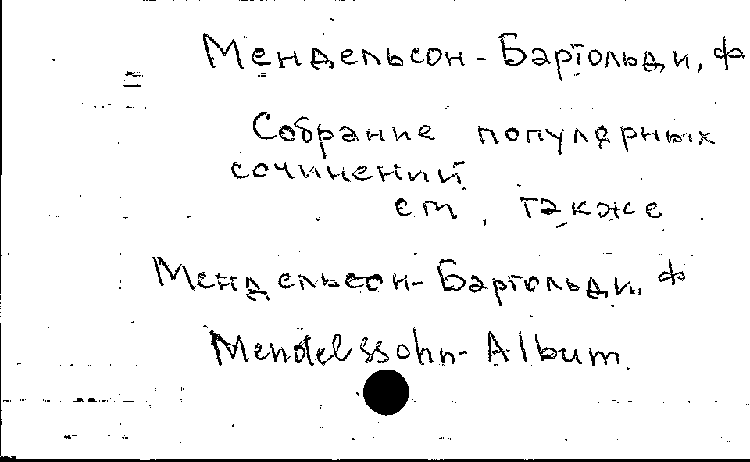 Мендельсон-Бартольди, Ф
Собрание популярных
сочинений
см. также
Мендельсон-Бартольди, Ф
Mendelssohn-Album.